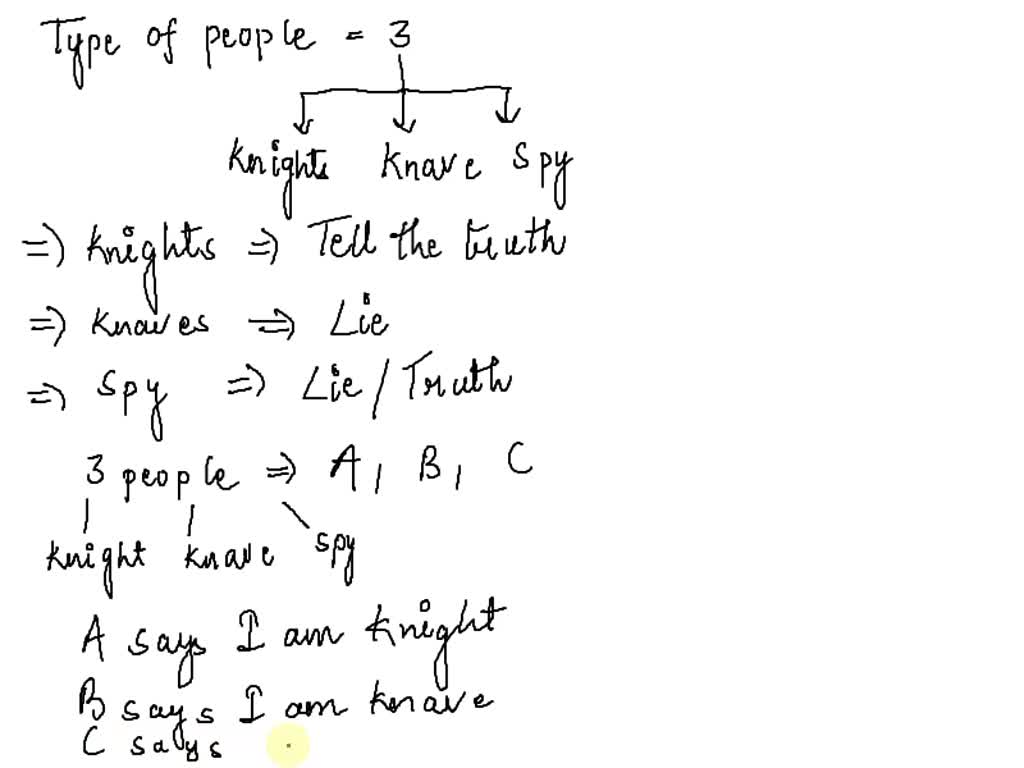 Type of people = 3
Knights Knave Spy
=) Knights => Tell the truth
=> Knaves => Lie
=> Spy => Lie / Truth
3 people => A, B, C
Knight Knave Spy
A says I am Knight
B says I am Knave
C says